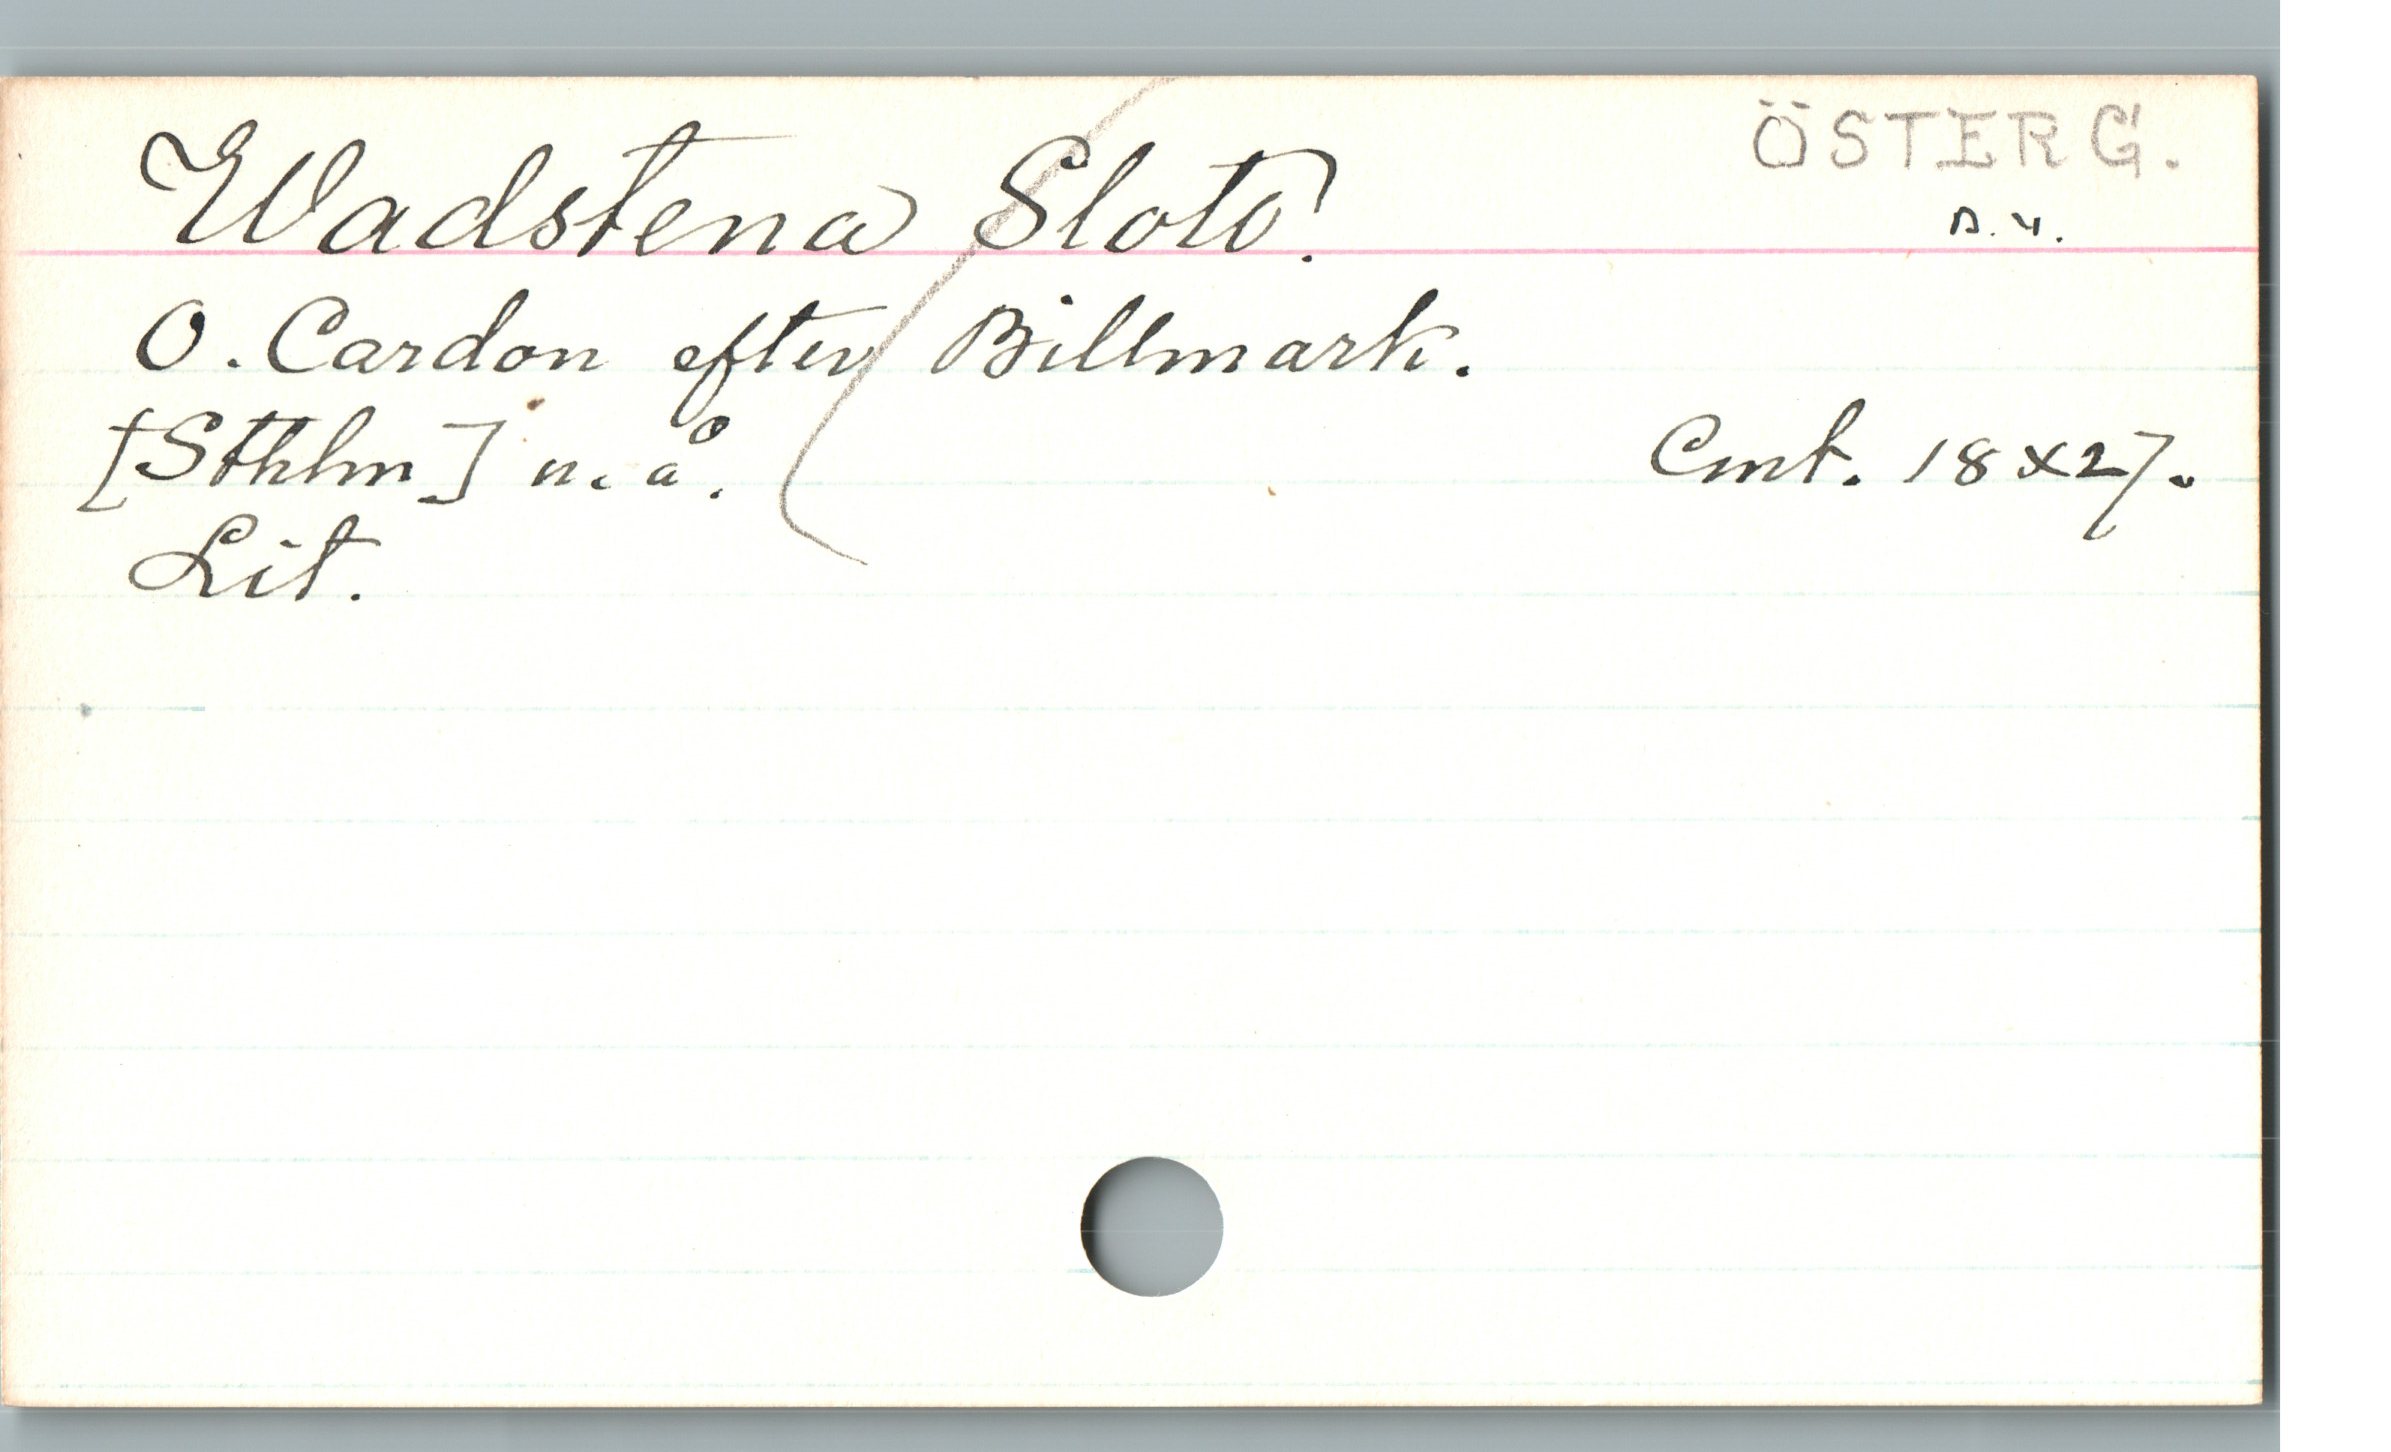 ÖSTERG.
Wadstena Slott.
O. Cardon efter Billmark.
[Sthlm] u. å. Cmt. 18x27.
Lit.